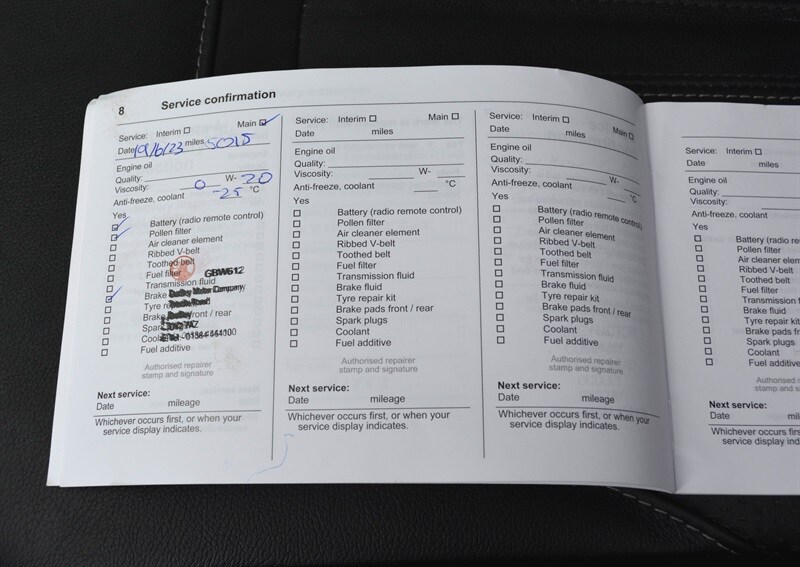 8 Service confirmation
Service: Interim ☐ Main ☑
Date 19/6/23 miles 5015
Engine oil
Quality:
Viscosity: 0 W- 20
Anti-freeze, coolant -25 °C
Yes
☑ Battery (radio remote control)
☑ Pollen filter
☐ Air cleaner element
☐ Ribbed V-belt
☐ Toothed belt
☐ Fuel filter GBW612
☐ Transmission fluid
☑ Brake Motor Company,
☐ Tyre
☐ Brake front / rear
☐
☐
☐ Fuel additive
Authorised repairer
stamp and signature
Next service:
Date mileage
Whichever occurs first, or when your
service display indicates.
Service: Interim ☐ Main ☐
Date miles
Engine oil
Quality:
Viscosity: W-
Anti-freeze, coolant °C
Yes
☐ Battery (radio remote control)
☐ Pollen filter
☐ Air cleaner element
☐ Ribbed V-belt
☐ Toothed belt
☐ Fuel filter
☐ Transmission fluid
☐ Brake fluid
☐ Tyre repair kit
☐ Brake pads front / rear
☐ Spark plugs
☐ Coolant
☐ Fuel additive
Authorised repairer
stamp and signature
Next service:
Date mileage
Whichever occurs first, or when your
service display indicates.
Service: Interim ☐ Main ☐
Date miles
Engine oil
Quality:
Viscosity: W-
Anti-freeze, coolant °C
Yes
☐ Battery (radio remote control)
☐ Pollen filter
☐ Air cleaner element
☐ Ribbed V-belt
☐ Toothed belt
☐ Fuel filter
☐ Transmission fluid
☐ Brake fluid
☐ Tyre repair kit
☐ Brake pads front / rear
☐ Spark plugs
☐ Coolant
☐ Fuel additive
Authorised repairer
stamp and signature
Next service:
Date mileage
Whichever occurs first, or when your
service display indicates.
Service: Interim ☐
Date miles
Engine oil
Quality:
Viscosity:
Anti-freeze, coolant
Yes
☐ Battery (radio re
☐ Pollen filter
☐ Air cleaner elem
☐ Ribbed V-belt
☐ Toothed belt
☐ Fuel filter
☐ Transmission
☐ Brake fluid
☐ Tyre repair kit
☐ Brake pads fr
☐ Spark plugs
☐ Coolant
☐ Fuel additive
Authorised
stamp and s
Next service:
Date mil
Whichever occurs firs
service display ind